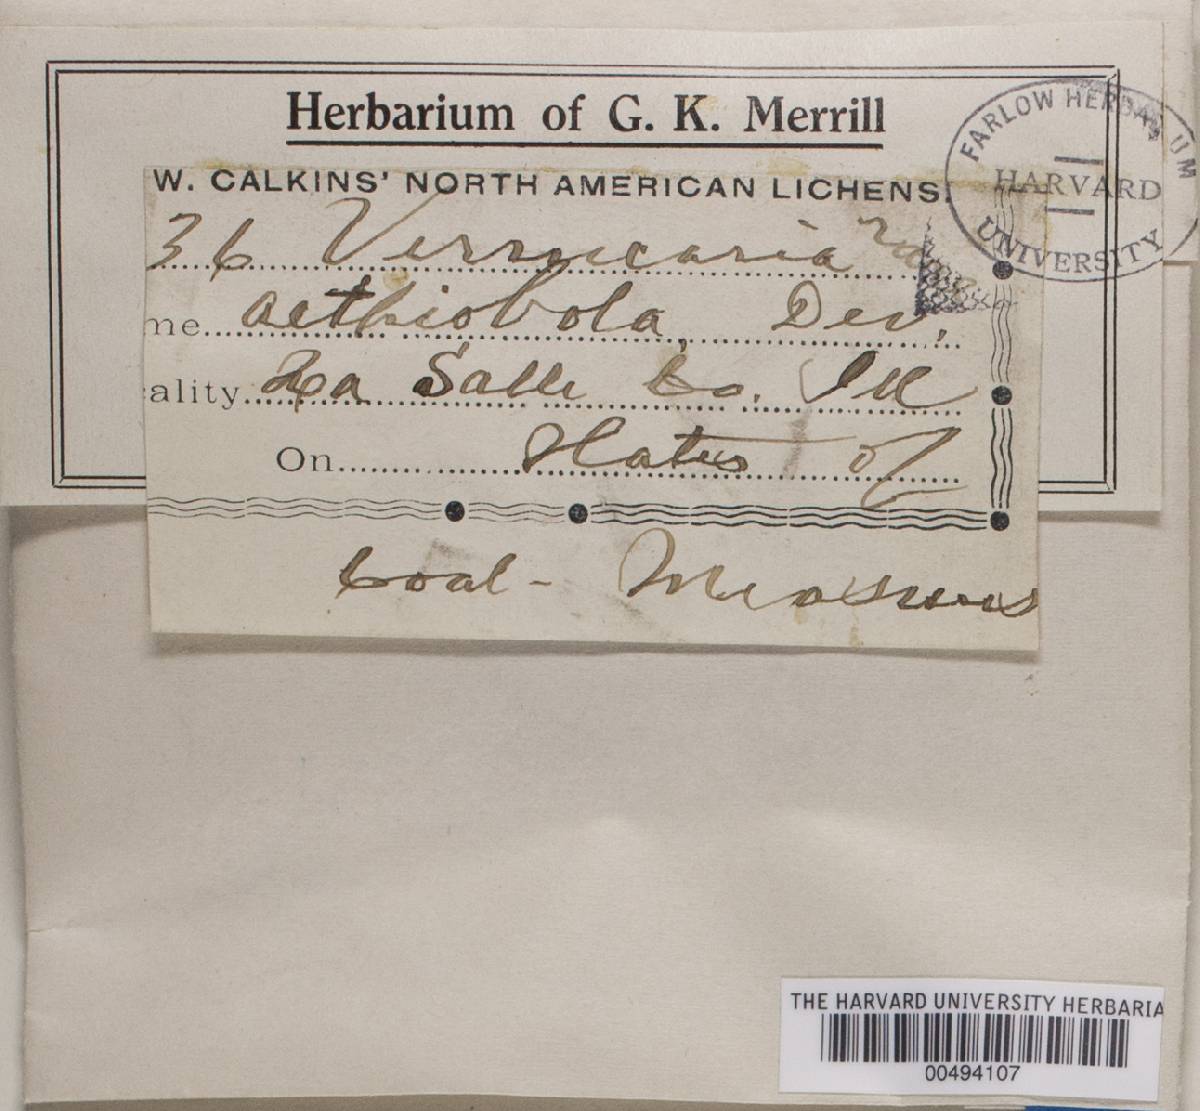 Herbarium of G. K. Merrill
FARLOW HERBARIUM
HARVARD
UNIVERSITY
W. CALKINS' NORTH AMERICAN LICHENS.
36 Verrucaria
me aethiobola,
ality La Salle Co. Ill
On Slates of
Coal- Measures
THE HARVARD UNIVERSITY HERBARIA
00494107